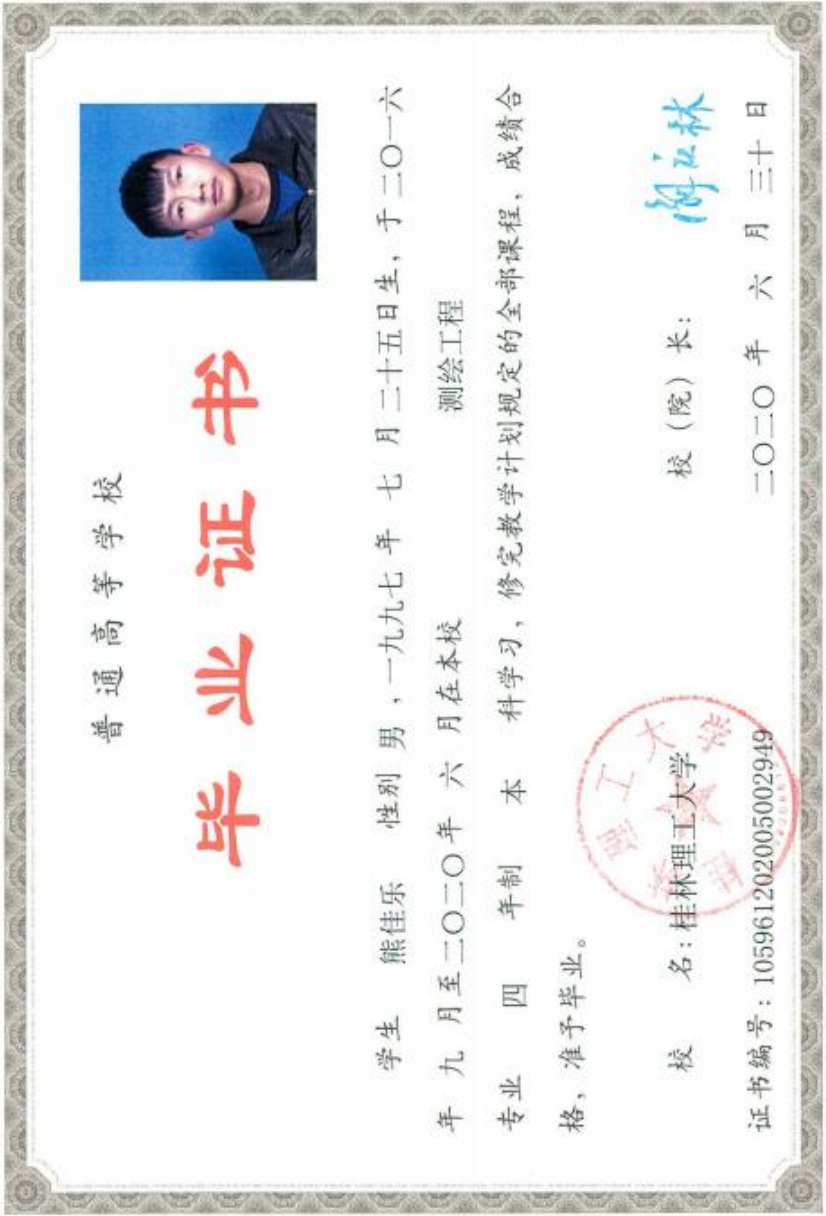 普通高等学校
毕业证书
学生 熊佳乐 性别 男 ,一九九七 年 七 月 二十五日生，于二〇一六
年 九 月至二〇二〇年 六 月在本校 测绘工程
专业 四 年制 本 科学习，修完教学计划规定的全部课程，成绩合
格，准予毕业。
校 名:桂林理工大学
校（院）长:
桂林理工大学
证书编号:105961202005002949
二〇二〇 年 六 月 三十 日